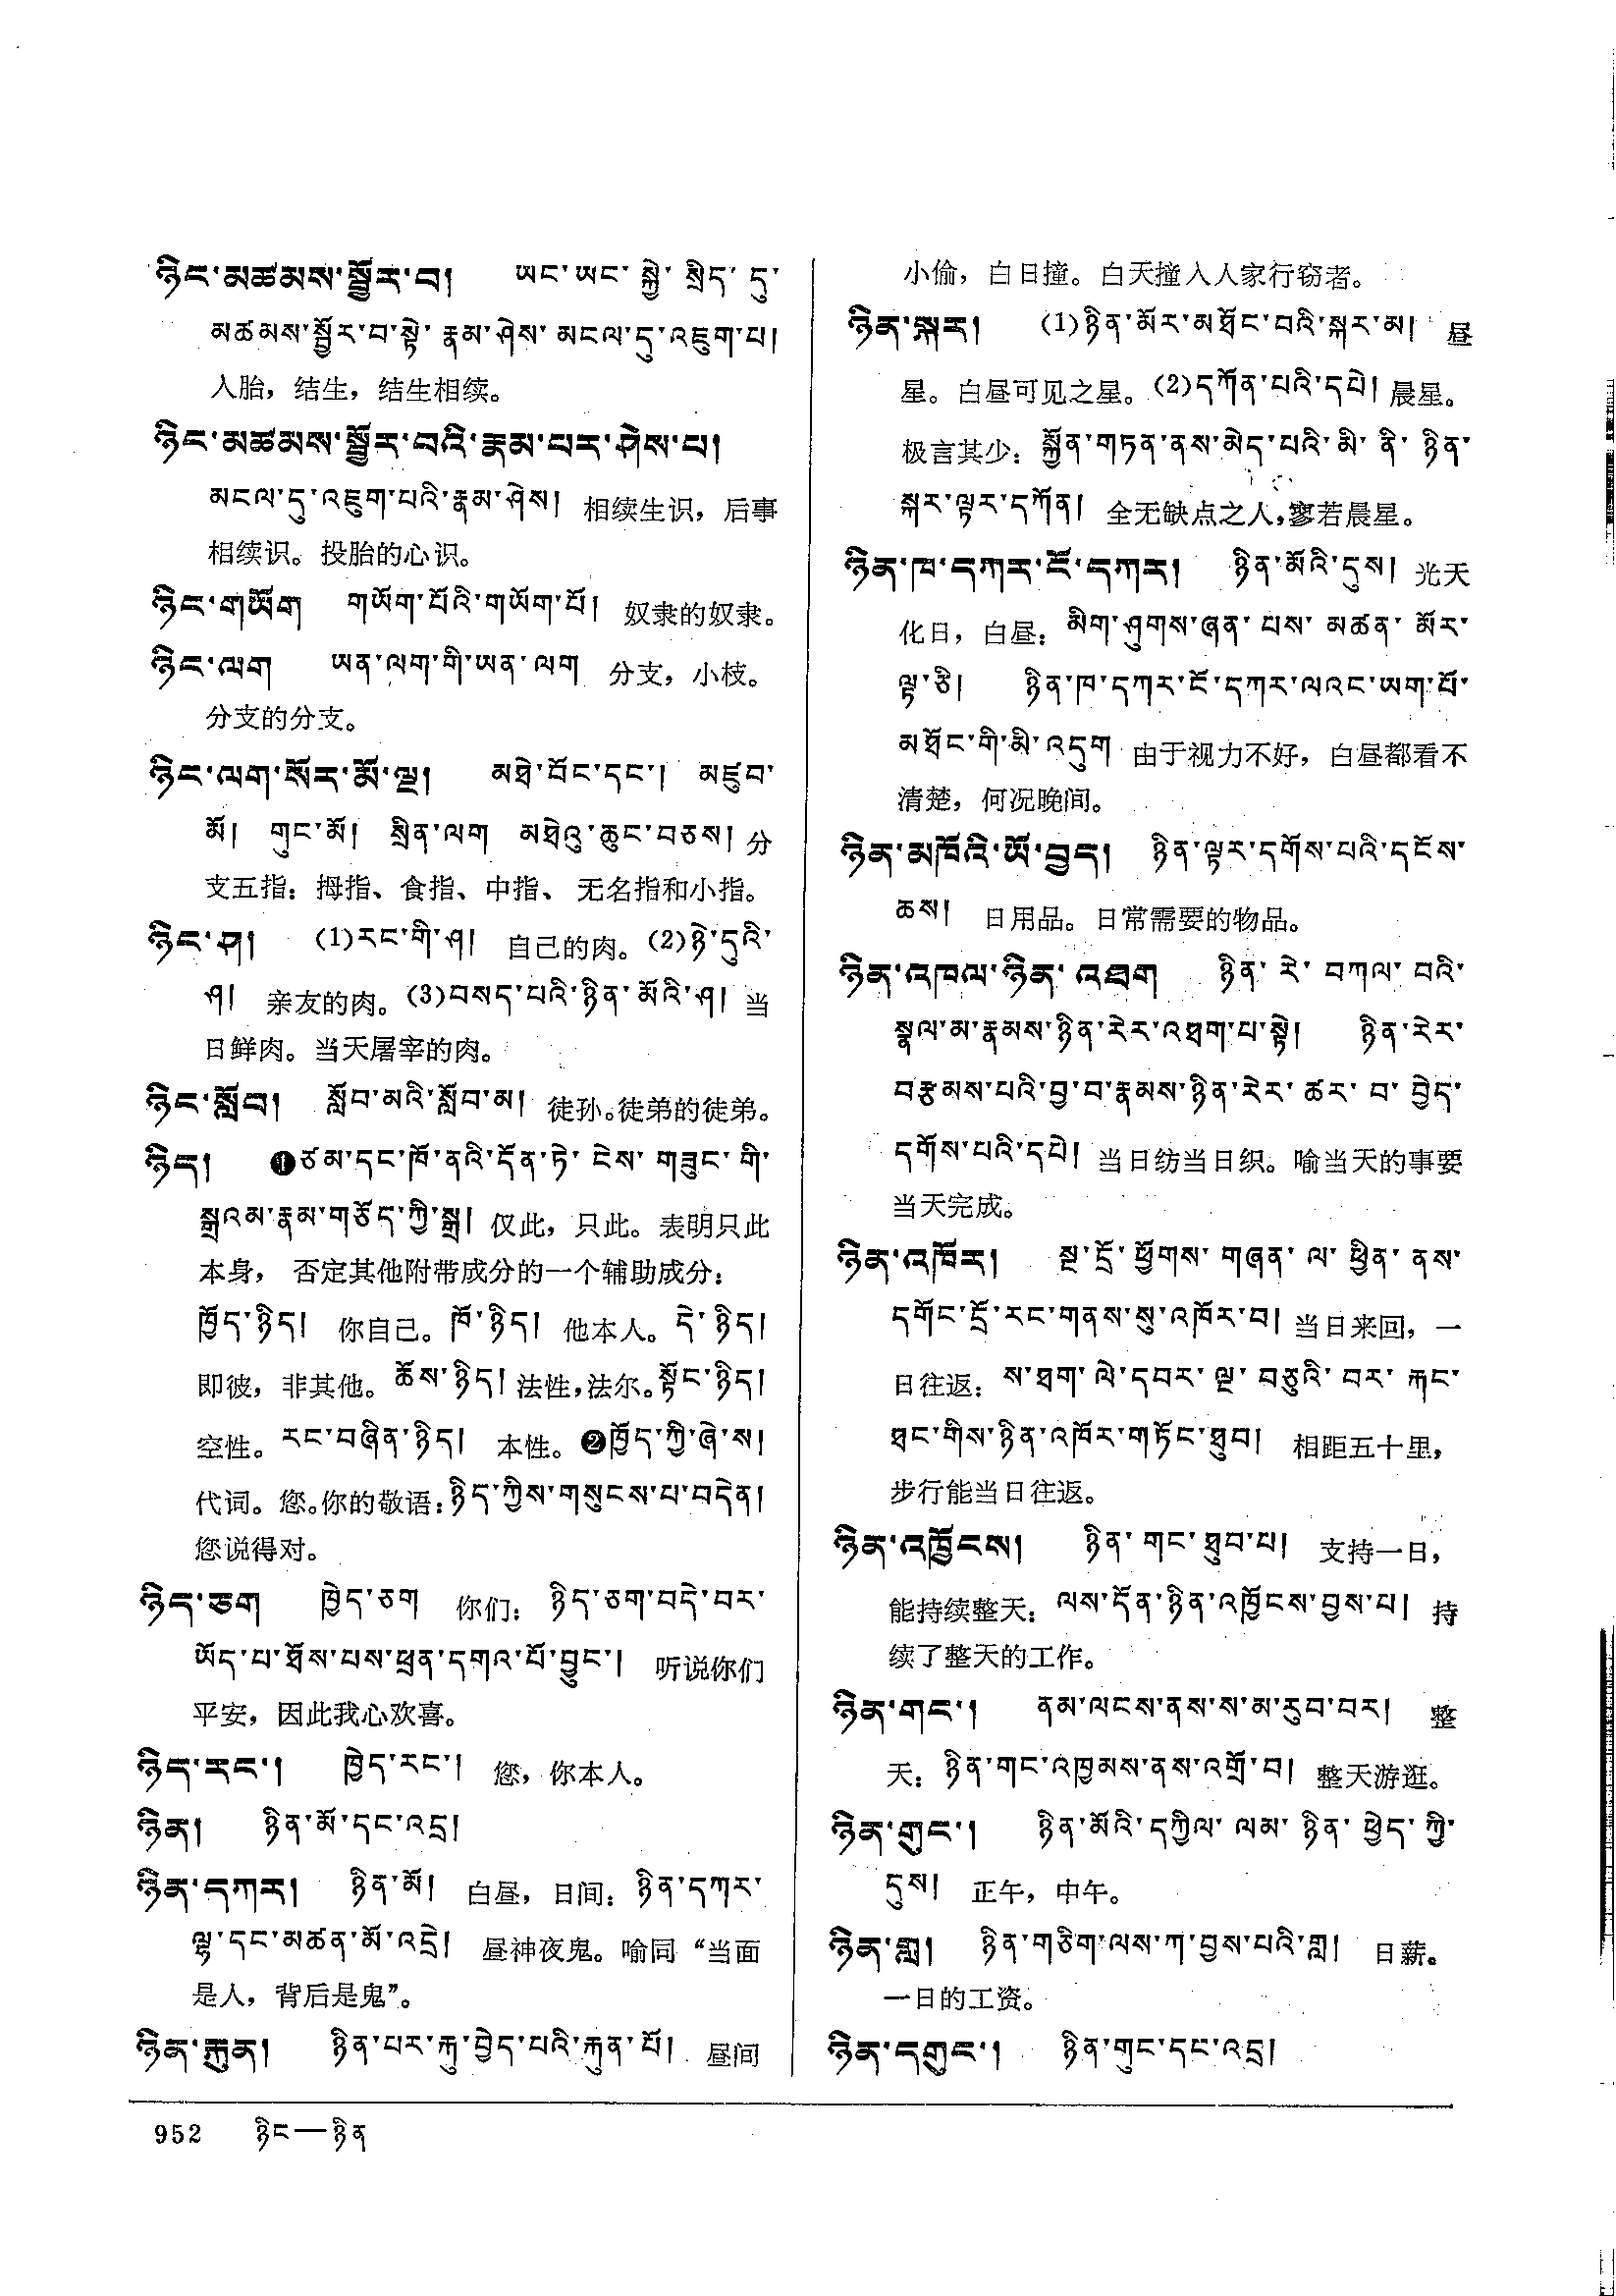 ཉིང་མཚམས་སྦྱོར་བ། ཡང་ཡང་སྐྱེ་སྲིད་དུ་
མཚམས་སྦྱོར་བ་སྟེ་རྣམ་ཤེས་མངལ་དུ་འཇུག་པ།
入胎，结生，结生相续。
ཉིང་མཚམས་སྦྱོར་བའི་རྣམ་པར་ཤེས་པ།
མངལ་དུ་འཇུག་པའི་རྣམ་ཤེས། 相续生识，后事
相续识。投胎的心识。
ཉིང་གཡོག གཡོག་པོའི་གཡོག་པོ། 奴隶的奴隶。
ཉིང་ལག ཡན་ལག་གི་ཡན་ལག 分支，小枝。
分支的分支。
ཉིང་ལག་སོར་མོ་ལྔ། མཐེ་བོང་དང་། མཛུབ་
མོ། གུང་མོ། སྲིན་ལག མཐེའུ་ཆུང་བཅས། 分
支五指：拇指、食指、中指、无名指和小指。
ཉིང་ཤ། (1)རང་གི་ཤ། 自己的肉。(2)ཉེ་དུའི་
ཤ། 亲友的肉。(3)བསད་པའི་ཉིན་མོའི་ཤ། 当
日鲜肉。当天屠宰的肉。
ཉིང་སློབ། སློབ་མའི་སློབ་མ། 徒孙。徒弟的徒弟。
ཉིད། ❶ཙམ་དང་ཁོ་ནའི་དོན་ཏེ་ངེས་གཟུང་གི་
སྒྲའམ་རྣམ་གཅོད་ཀྱི་སྒྲ། 仅此，只此。表明只此
本身，否定其他附带成分的一个辅助成分：
ཁྱོད་ཉིད། 你自己。ཁོ་ཉིད། 他本人。དེ་ཉིད།
即彼，非其他。ཆོས་ཉིད། 法性，法尔。སྟོང་ཉིད།
空性。རང་བཞིན་ཉིད། 本性。❷ཁྱོད་ཀྱི་ཞེ་ས།
代词。您。你的敬语：ཉིད་ཀྱིས་གསུངས་པ་བདེན།
您说得对。
ཉིད་ཅག ཁྱེད་ཅག 你们：ཉིད་ཅག་བདེ་བར་
ཡོད་པ་ཐོས་པས་ཕྲན་དགའ་པོ་བྱུང་། 听说你们
平安，因此我心欢喜。
ཉིད་རང་། ཁྱེད་རང་། 您，你本人。
ཉིན། ཉིན་མོ་དང་འདྲ།
ཉིན་དཀར། ཉིན་མོ། 白昼，日间：ཉིན་དཀར་
ལྷ་དང་མཚན་མོ་འདྲེ། 昼神夜鬼。喻同“当面
是人，背后是鬼”。
ཉིན་རྐུན། ཉིན་པར་རྐུ་བྱེད་པའི་རྐུན་པོ། 昼间
小偷，白日撞。白天撞入人家行窃者。
ཉིན་སྐར། (1)ཉིན་མོར་མཐོང་བའི་སྐར་མ། 昼
星。白昼可见之星。(2)དཀོན་པའི་དཔེ། 晨星。
极言其少：སྐྱོན་གཏན་ནས་མེད་པའི་མི་ནི་ཉིན་
སྐར་ལྟར་དཀོན། 全无缺点之人，寥若晨星。
ཉིན་ཁ་དཀར་ངོ་དཀར། ཉིན་མོའི་དུས། 光天
化日，白昼：མིག་ཤུགས་ཞན་པས་མཚན་མོར་
ལྟ་ཅི། ཉིན་ཁ་དཀར་ངོ་དཀར་ལའང་ཡག་པོ་
མཐོང་གི་མི་འདུག 由于视力不好，白昼都看不
清楚，何况晚间。
ཉིན་མཁོའི་ཡོ་བྱད། ཉིན་ལྟར་དགོས་པའི་དངོས་
ཆས། 日用品。日常需要的物品。
ཉིན་འཁལ་ཉིན་འཐག ཉིན་རེ་བཀལ་བའི་
སྣལ་མ་རྣམས་ཉིན་རེར་འཐག་པ་སྟེ། ཉིན་རེར་
བརྩམས་པའི་བྱ་བ་རྣམས་ཉིན་རེར་ཚར་བ་བྱེད་
དགོས་པའི་དཔེ། 当日纺当日织。喻当天的事要
当天完成。
ཉིན་འཁོར། སྔ་དྲོ་ཕྱོགས་གཞན་ལ་ཕྱིན་ནས་
དགོང་དྲོ་རང་གནས་སུ་འཁོར་བ། 当日来回，一
日往返：ས་ཐག་ལེ་དབར་ལྔ་བཅུའི་བར་རྐང་
ཐང་གིས་ཉིན་འཁོར་གཏོང་ཐུབ། 相距五十里，
步行能当日往返。
ཉིན་འཁྱོངས། ཉིན་གང་ཐུབ་པ། 支持一日，
能持续整天：ལས་དོན་ཉིན་འཁྱོངས་བྱས་པ། 持
续了整天的工作。
ཉིན་གང་། ནམ་ལངས་ནས་ས་མ་རུབ་བར། 整
天：ཉིན་གང་འཁྱམས་ནས་འགྲོ་བ། 整天游逛。
ཉིན་གུང་། ཉིན་མོའི་དཀྱིལ་ལམ་ཉིན་ཕྱེད་ཀྱི་
དུས། 正午，中午。
ཉིན་གླ། ཉིན་གཅིག་ལས་ཀ་བྱས་པའི་གླ། 日薪。
一日的工资。
ཉིན་དགུང་། ཉིན་གུང་དང་འདྲ།
952 ཉིང—ཉིན